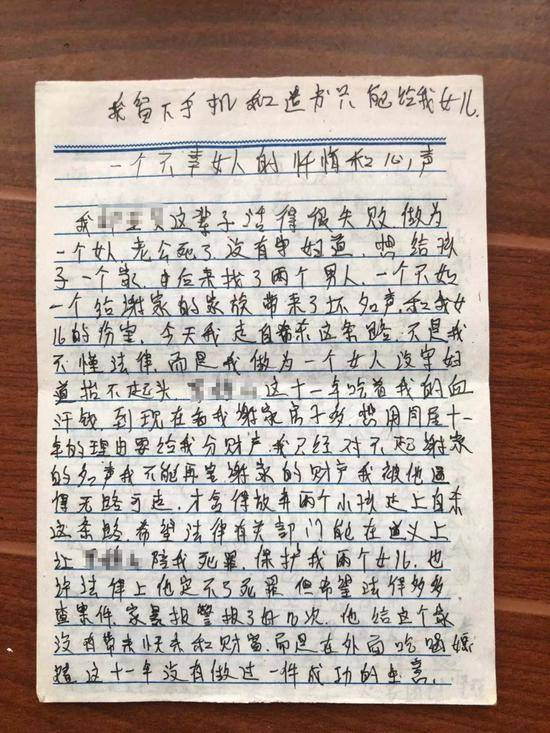 我留下手机和遗书只能给我女儿.
一个不幸女人的忏悔和心声
我 这辈子活得很失败做为
一个女人,老公死了没有守妇道,想给孩
子一个家,由后来找了两个男人.一个不如
一个给谢家的家族带来了坏名声.和我女
儿的伤害,今天我走自杀这条路,不是我
不懂法律.而是我做为一个女人没守妇
道抬不起头, 这十一年吃着我的血
汗钱,到现在看我谢家房子多,想用同居十一
年的理由要给我分财产.我已经对不起谢家
的名声我不能再害谢家的财产我被他逼
得无路可走,才舍得放弃两个小孩走上自杀
这条路.希望法律有关部门能在道义上
让 陪我死罪.保护我两个女儿.也
许法律上他定不了死罪 但希望法律多多
查案件,家暴报警报了好几次.他给这个家
没有带来快乐和财富.而是在外面吃喝嫖
赌 这十一年没有做过一件成功的生意.